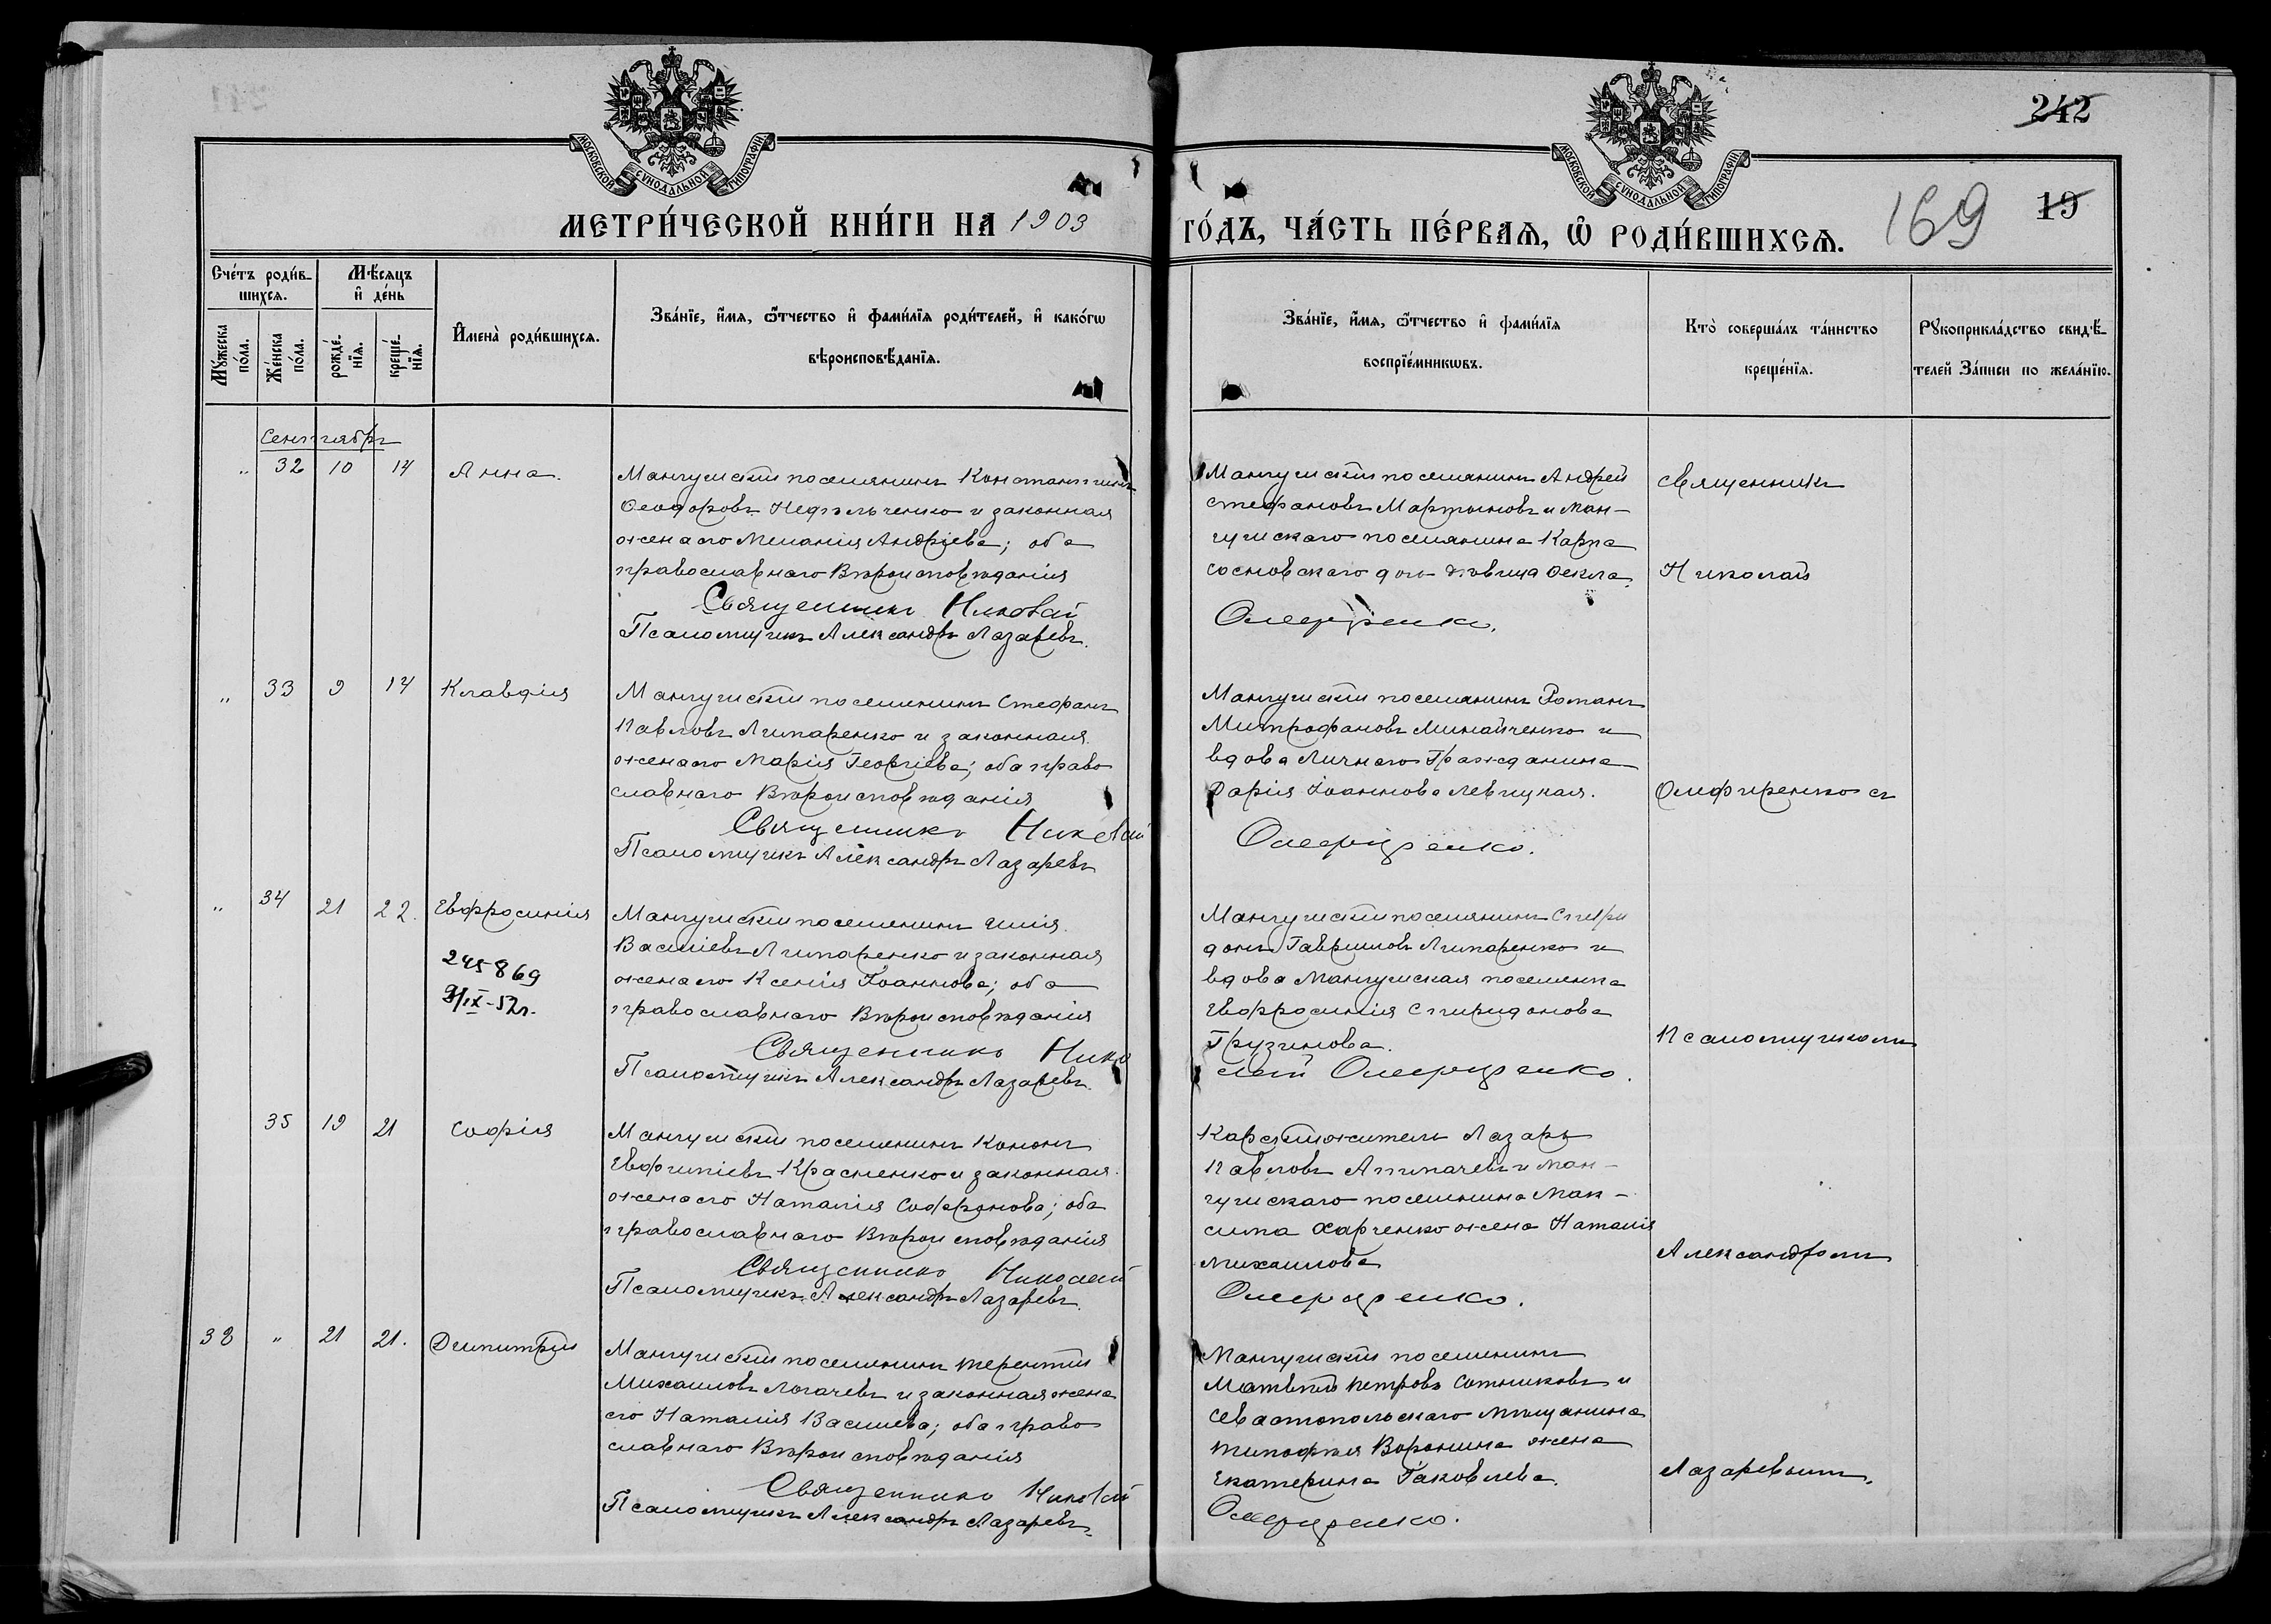 242
МОСКОВСКОЙ СУНОДАЛЬНОЙ ТИПОГРАФІИ
МОСКОВСКОЙ СУНОДАЛЬНОЙ ТИПОГРАФІИ
169
19
МЕТРИ́ЧЕСКОЙ КНИ́ГИ НА 1903
ГО́ДЪ, ЧА́СТЬ ПЕ́РВАѦ, Ѡ҆ РОДИ́ВШИХСѦ.
Сче́тъ роди́в-
шихсѧ.
Мѣ́сѧцъ
и҆ де́нь
Мꙋжеска
по́ла.
Же́нска
по́ла.
рожде́-
нїѧ.
креще́-
нїѧ.
И҆мена̀ роди́вшихсѧ.
Зва́нїе, и҆́мѧ, ѻ҆́тчество и҆ фами́лїѧ роди́телей, и҆ како́гѡ
вѣроисповѣ́данїѧ.
Зва́нїе, и҆́мѧ, ѻ҆́тчество и҆ фами́лїѧ
воспрїе́мникѡвъ.
Кто̀ соверша́лъ та́инство
креще́нїѧ.
Рꙋкоприкла́дство свидѣ́-
телей За́писи по жела́нїю.
Сентябрь
" 32 10 14 Анна.
Мангушскій поселянинъ Константинъ
Ѳеодоровъ Недѣльченко и законная
жена его Меланія Андріева; оба
православнаго Вѣроисповѣданія
Священникъ Николай
Псаломщикъ Александръ Лазаревъ.
Мангушскій поселянинъ Андрей
Стефановъ Мартыновъ и Ман-
гушскаго поселянина Карпа
Сосновскаго дочь дѣвица Ѳекла.
Олефиренко.
Священникъ
Николай
" 33 9 14 Клавдія
Мангушскій поселянинъ Стефанъ
Павловъ Липаренко и законная
жена его Марія Георгіева; оба право
славнаго Вѣроисповѣданія
Священникъ Николай
Псаломщикъ Александръ Лазаревъ
Мангушскій поселянинъ Романъ
Митрофановъ Минайченко и
вдова Личнаго Гражданина
Дарія Іоаннова Левицкая.
Олефиренко.
Олефиренко съ
" 34 21 22. Евфросинія
245869
9/IX-52г.
Мангушскій поселянинъ Илія
Василіевъ Липаренко и законная
жена его Ксенія Іоаннова; оба
православнаго Вѣроисповѣданія
Священникъ Нико
Псаломщикъ Александръ Лазаревъ.
Мангушскій поселянинъ Спири
донъ Гавриловъ Липаренко и
вдова Мангушская поселянка
Евфросинія Спиридонова
Грузинова.
лай Олефиренко.
Псаломщикомъ
35 19 21 Софія
Мангушскій поселянинъ Кононъ
Евфиміевъ Красненко и законная
жена его Наталія Софронова; оба
православнаго Вѣроисповѣданія
Священникъ Николай
Псаломщикъ Александръ Лазаревъ.
Карскій житель Лазарь
Павловъ и Ман-
гушскаго поселянина Мак-
сима Харченко жена Наталія
Михаилова
Олефиренко.
Александромъ
38 " 21 21. Димитрій
Мангушскій поселянинъ Терентій
Михаиловъ Логачевъ и законная жена
его Наталія Васильева; оба право
славнаго Вѣроисповѣданія
Священникъ Николай
Псаломщикъ Александръ Лазаревъ.
Мангушскій поселянинъ
Матѳій Петровъ Сотниковъ и
Севастопольскаго мѣщанина
Тимоѳея Воронина жена
Екатерина Іаковлева.
Олефиренко.
Лазаревымъ.